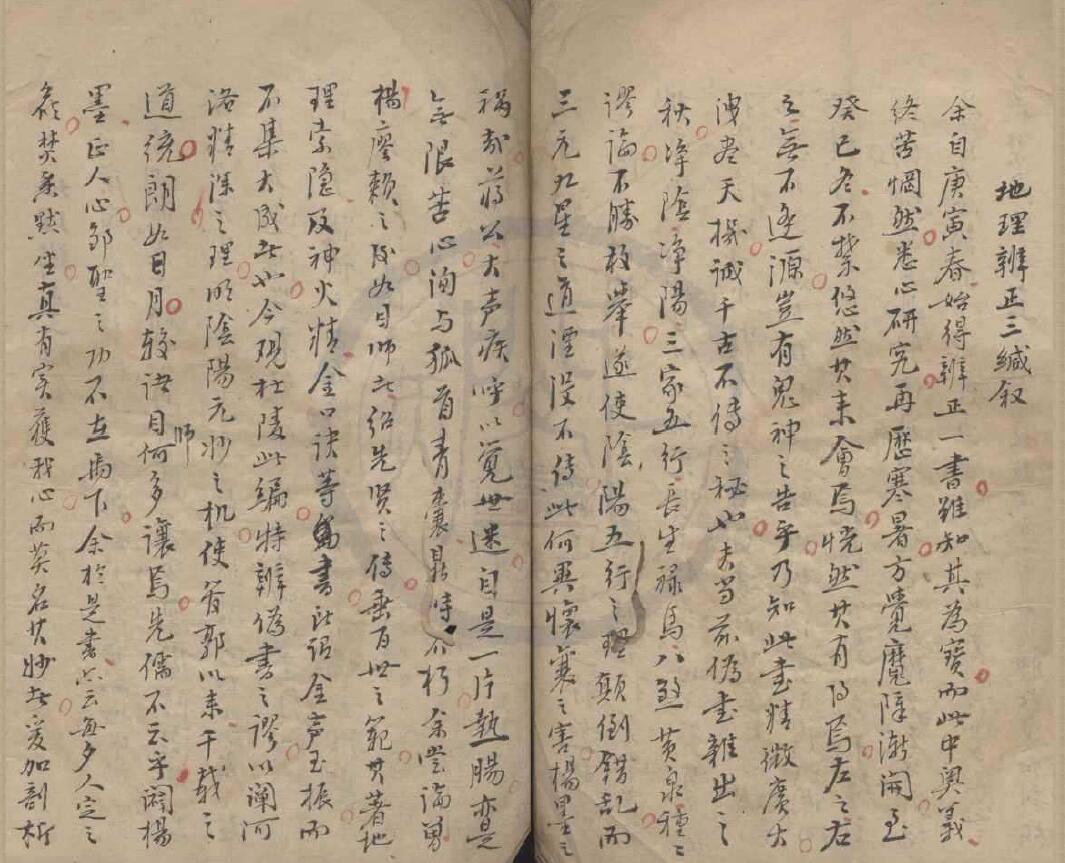 地理辨正三緘叙
余自庚寅春始得辨正一書雖知其為寶而此中奧義
終苦惘然悉心研究再歷寒暑方覺魔障漸開至
癸巳冬不禁悠然其来會焉恍然其有得焉左之右
之無不逢源豈有鬼神之告乎乃知此書精微廣大
洩盡天機誠千古不傳之秘也夫當兹偽書雜出之
秋净陰净陽三家五行長生祿馬八煞黄泉種種
謬論不勝枚舉遂使陰陽五行之理顛倒錯乱而
三元九星之道湮没不傳此何異懷襄之害楊墨之
禍哉蒋公大声疾呼以覚世迷自是一片熱腸亦是
無限苦心洵与狐首青囊晁時不朽余嘗論曾
楊廖賴之後如目師此紹先賢之傳垂百世之範其著地
理索隐及神火精金口诀等書此詔金声玉振而
不集大成者也今观杜陵此编特辨偽書之謬以闡河
洛精深之理明陰陽元妙之机使管郭以来千载之
道統朗如日月較诸目師何多讓焉先儒不云乎闢楊
墨正人心邹聖之功不在禹下余於是書亦云每夕人定之
后焚香默坐真有实獲我心而莫名其妙者爰加剖析